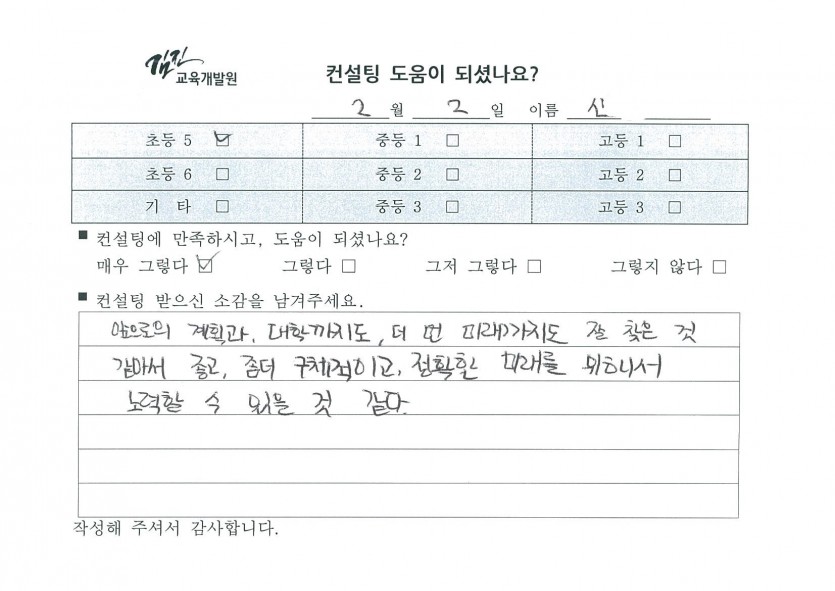 김진
교육개발원
컨설팅 도움이 되셨나요?
2 월 2 일 이름 신
초등 5 ☑ 중등 1 □ 고등 1 □
초등 6 □ 중등 2 □ 고등 2 □
기 타 □ 중등 3 □ 고등 3 □
■ 컨설팅에 만족하시고, 도움이 되셨나요?
매우 그렇다 ☑ 그렇다 □ 그저 그렇다 □ 그렇지 않다 □
■ 컨설팅 받으신 소감을 남겨주세요.
앞으로의 계획과, 대학까지도, 더 먼 미래까지도 잘 찾은 것
같아서 좋고, 좀더 구체적이고, 정확한 미래를 위해서
노력할 수 있을 것 같다.
작성해 주셔서 감사합니다.